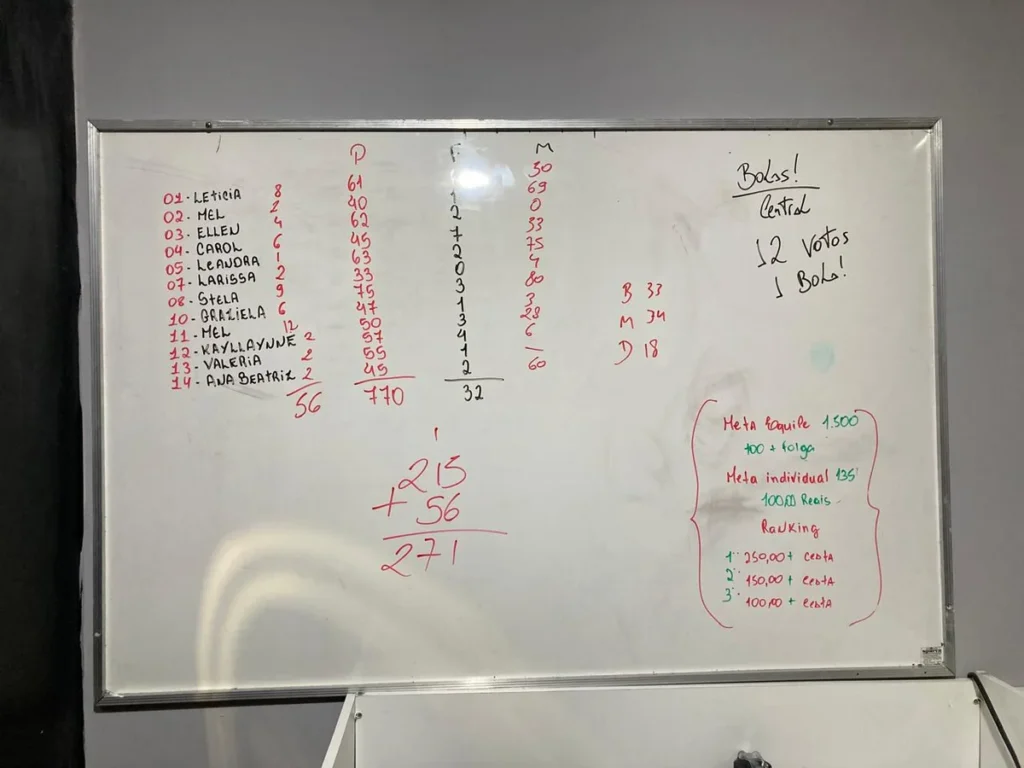 D F M
01- LETICIA 8 61 30
02- MEL 2 40 1 69
03- ELLEN 4 62 2 0
04- CAROL 6 45 7 33
05- LEANDRA 1 63 2 75
07- LARISSA 2 33 0 4
08- STELA 9 75 3 80
10- GRAZIELA 6 47 1 3
11- MEL 12 50 3 28
12- KAYLLAYNNE 2 57 4 6
13- VALERIA 2 55 1 —
14- ANA BEATRIZ 2 45 2 60
56 770 32
1
215
+ 56
271
B 33
M 34
D 18
Bolas!
Central
12 votos
1 Bola!
Meta Equipe 1.500
100 + folga
Meta individual 135
100,00 Reais
Ranking
1º 250,00 + cesta
2º 150,00 + cesta
3º 100,00 + cesta